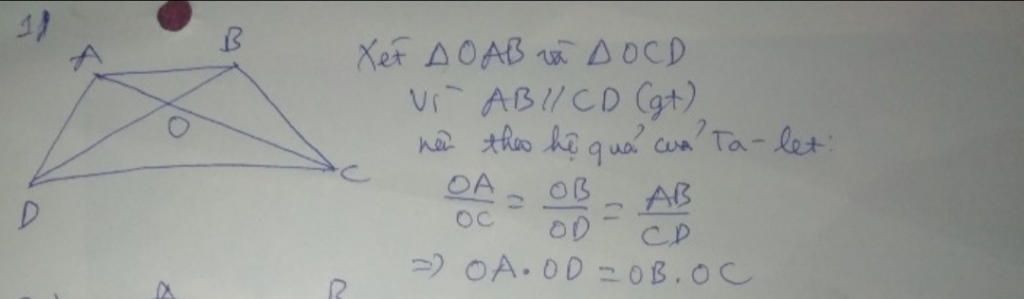 1)
A
B
O
D
C
Xét △OAB và △OCD
Vì AB // CD (gt)
nên theo hệ quả của Ta-let:
OA/OC = OB/OD = AB/CD
=> OA.OD = OB.OC
A B